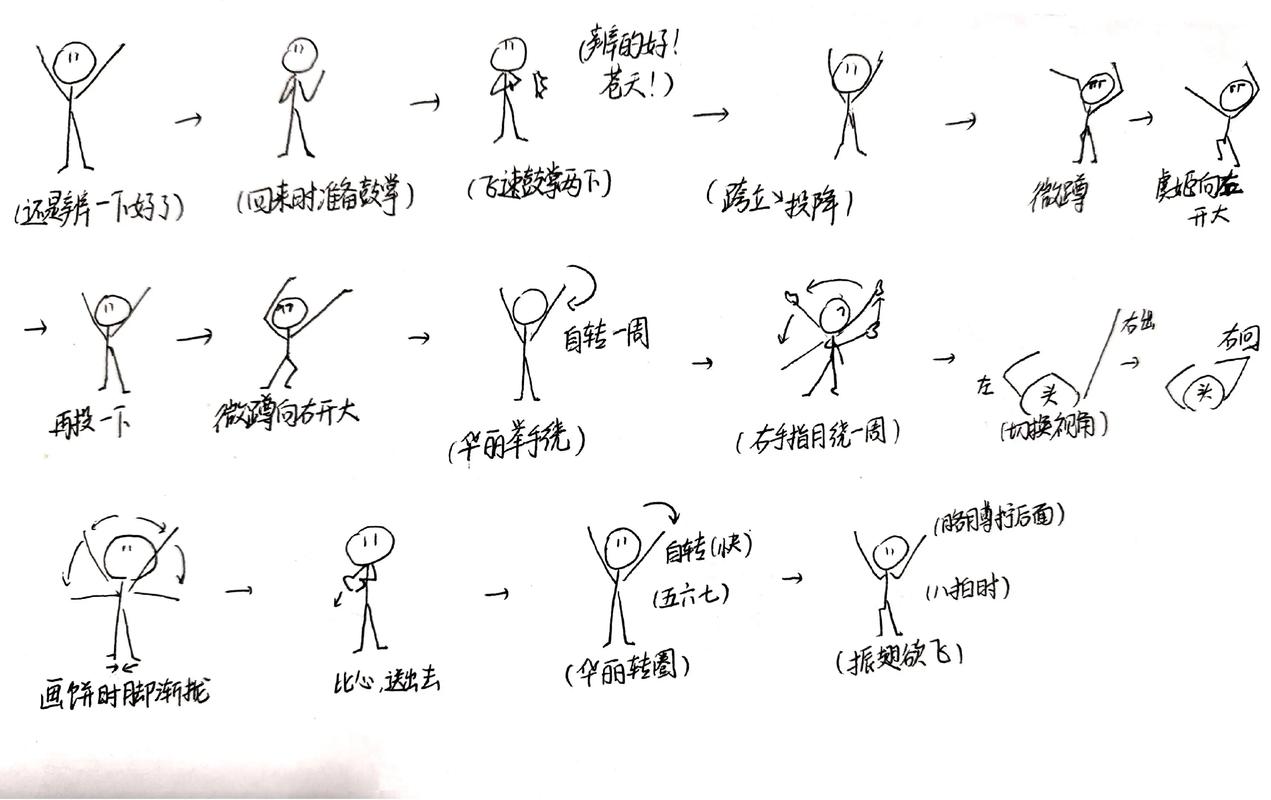 (还是辨一下好了)
(回来时准备鼓掌)
(飞速鼓掌两下)
(辨的好!
苍天!)
(跨立 投降)
微蹲
虞姬向左
开大
再投一下
微蹲向右开大
自转一周
(华丽举手绕)
(右手指月绕一周)
左
头
右出
(切换视角)
右回
头
画饼时脚渐拢
比心,送出去
自转(快)
(五六七)
(华丽转圈)
(略蹲拧后面)
(八拍时)
(振翅欲飞)